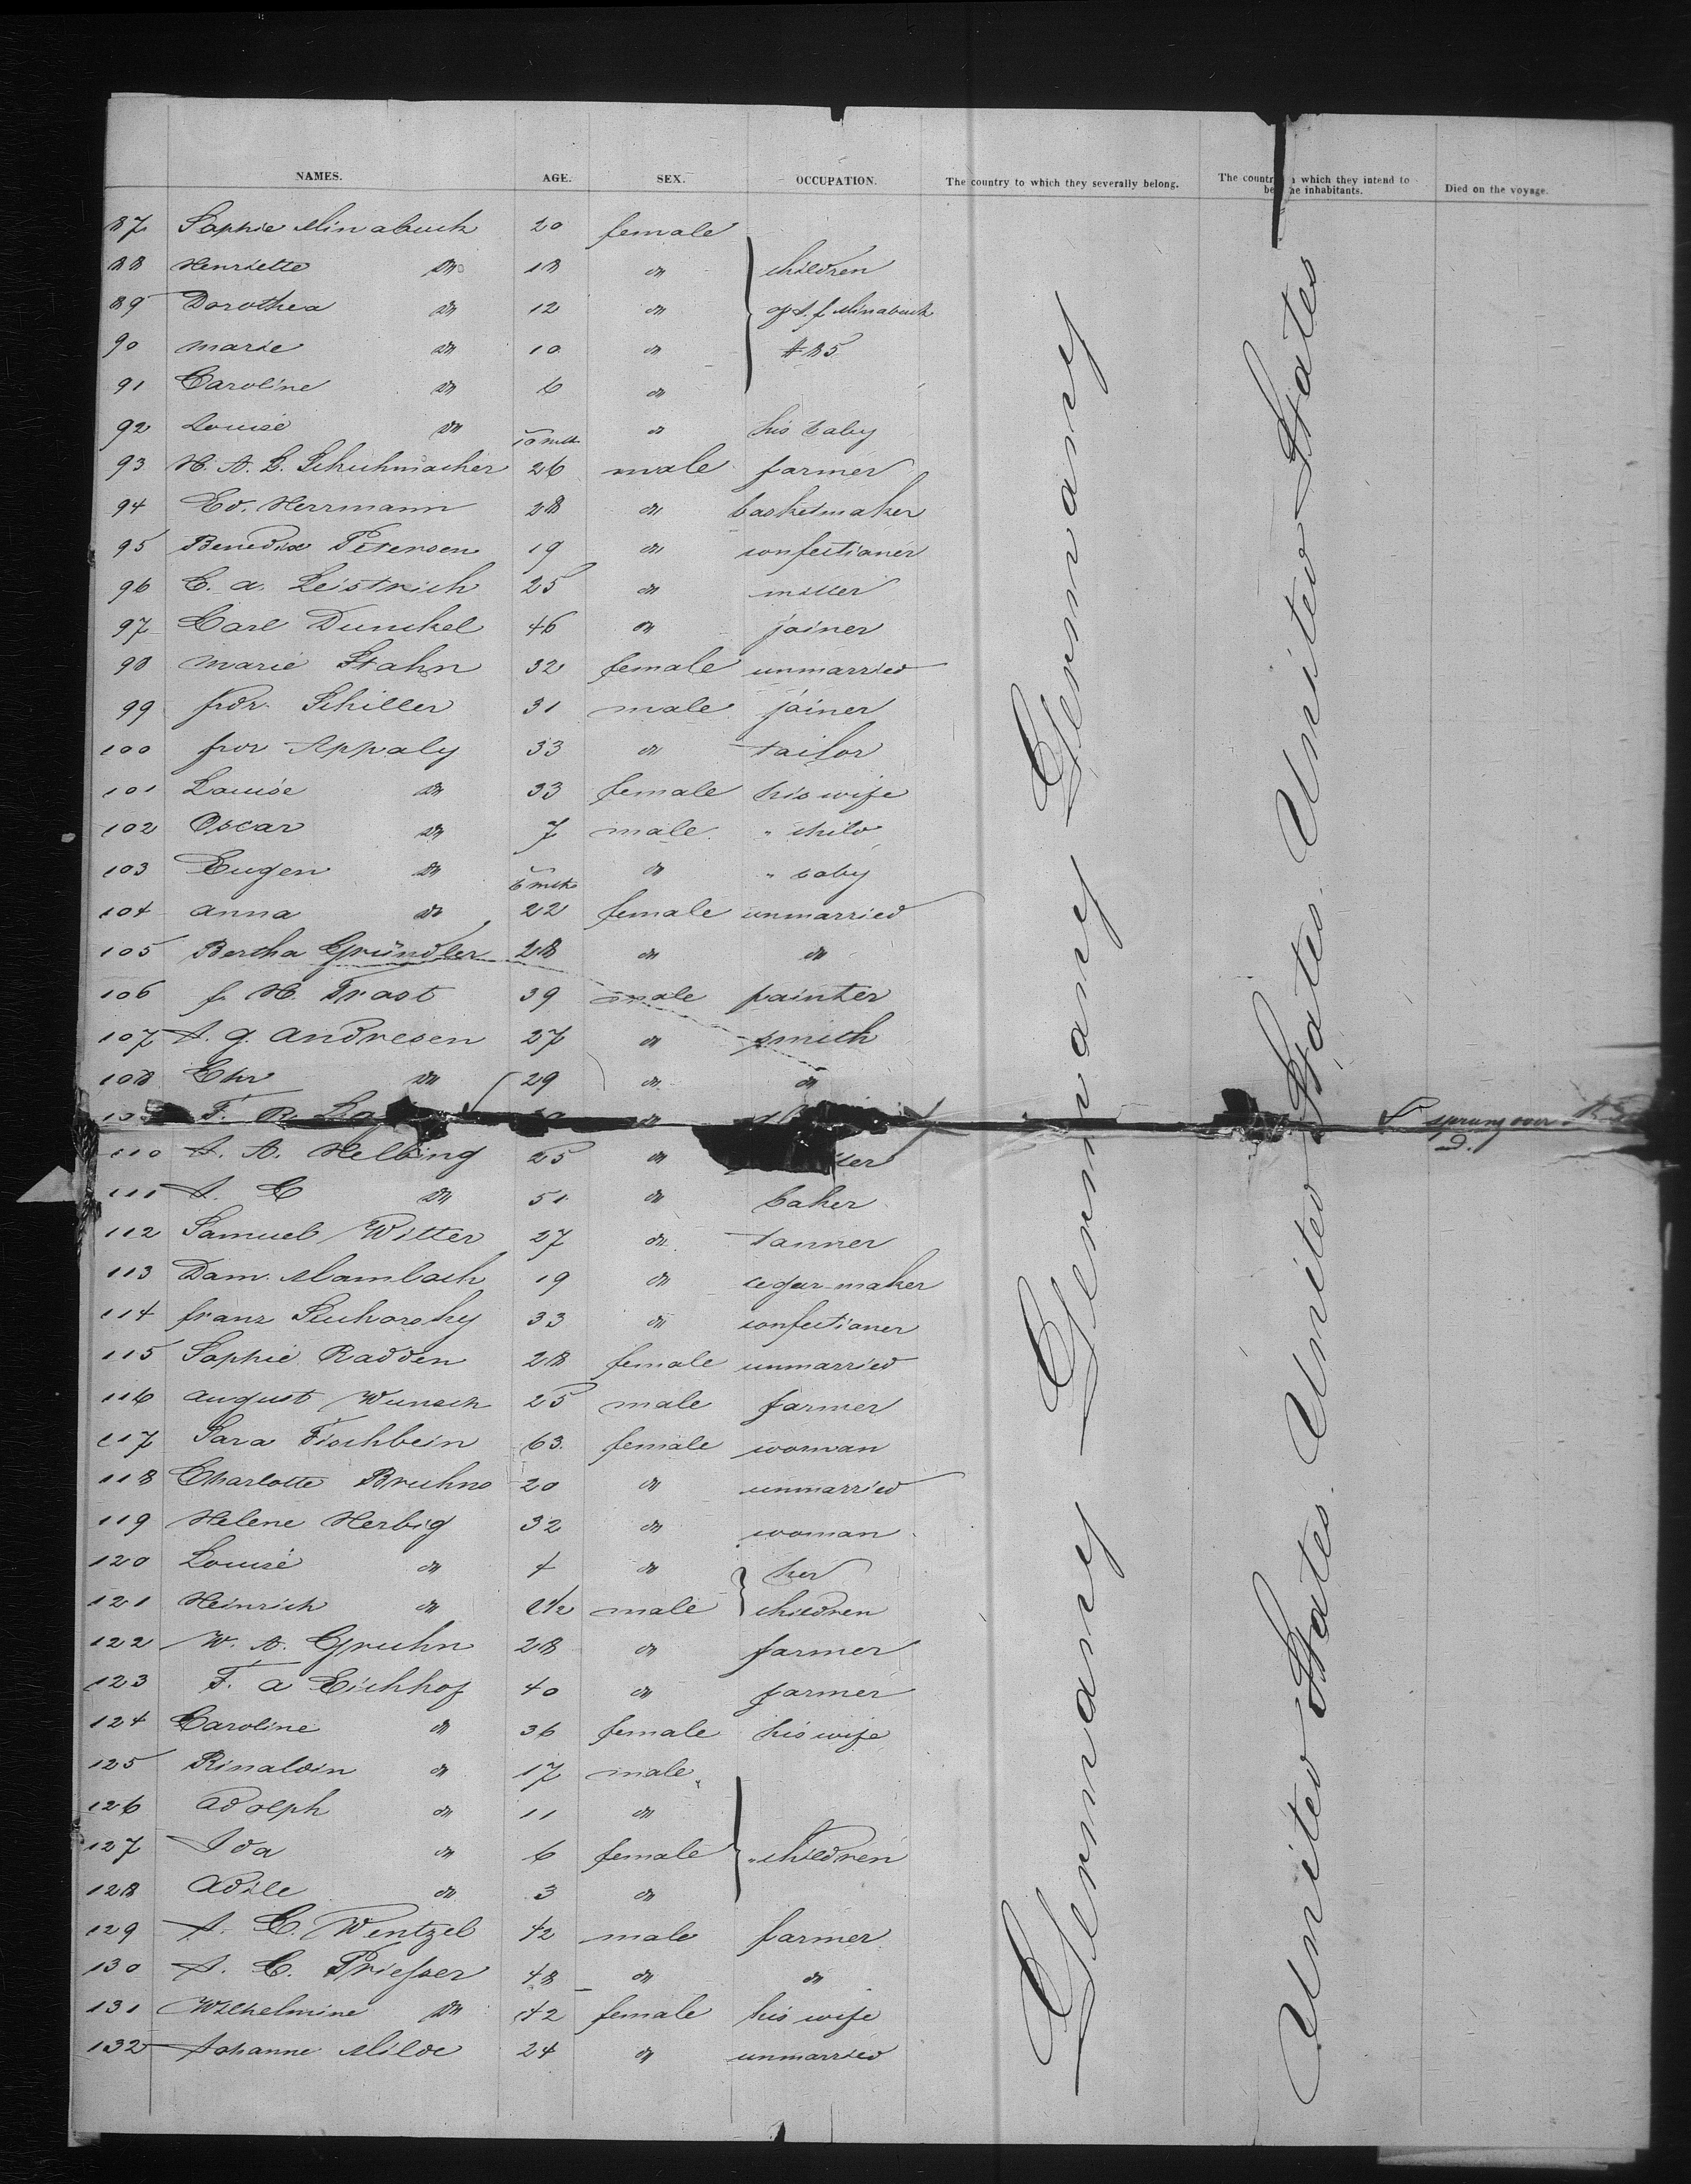 NAMES. AGE. SEX. OCCUPATION. The country to which they severally belong. The country which they intend to be ne inhabitants. Died on the voyage.
87 Sophie Minabuck 20 female
88 Henriette do 18 do children
89 Dorothea do 12 do of J. f Minabuck
90 Marie do 10 do # 85.
91 Caroline do 6 do
92 Louise do 10 mth do his baby
93 H. A. L. Schuhmacher 26 male farmer
94 Ed. Herrmann 28 do basketmaker
95 Benedix Petersen 19 do confectioner
96 C. A. Leistrich 25 do miller
97 Carl Dunckel 46 do joiner
98 Marie Stahn 32 female unmarried
99 frdr. Schiller 31 male joiner
100 frdr Appaly 33 do tailor
101 Louise do 33 female his wife
102 Oscar do 7 male " child
103 Eugen do 6 mth do " baby
104 Anna do 22 female unmarried
105 Bertha Gründler 28 do do
106 f. H. Trast 39 male painter
107 A. G. Andresen 27 do smith
108 Chr do 29 do do
F. R. do sprung over
110 A. A. Helbing 25 do D.
111 A. C do 51 do baker
112 Samuel Witter 27 do tanner
113 Dam. Mambach 19 do cegar maker
114 franz Suchorsky 33 do confectioner
115 Sophie Radden 28 female unmarried
116 August Wunsch 25 male farmer
117 Sara Fischbein 63 female woman
118 Charlotte Bruhns 20 do unmarried
119 Helene Herbig 32 do woman
120 Louise do 4 do her
121 Heinrich do 2 1/2 male children
122 W. A. Gruhn 28 do farmer
123 F. A Eichhof 40 do farmer
124 Caroline do 36 female his wife
125 Rinaldin do 17 male
126 Adolph do 11 do
127 Ida do 6 female " children
128 Adele do 3 do
129 A. C. Wentzel 42 male farmer
130 A. C. Priesser 48 do do
131 Wilhelmine do 42 female his wife
132 Johanne Milde 24 do unmarried
Germany Germany Germany Germany
United States. United States. United States